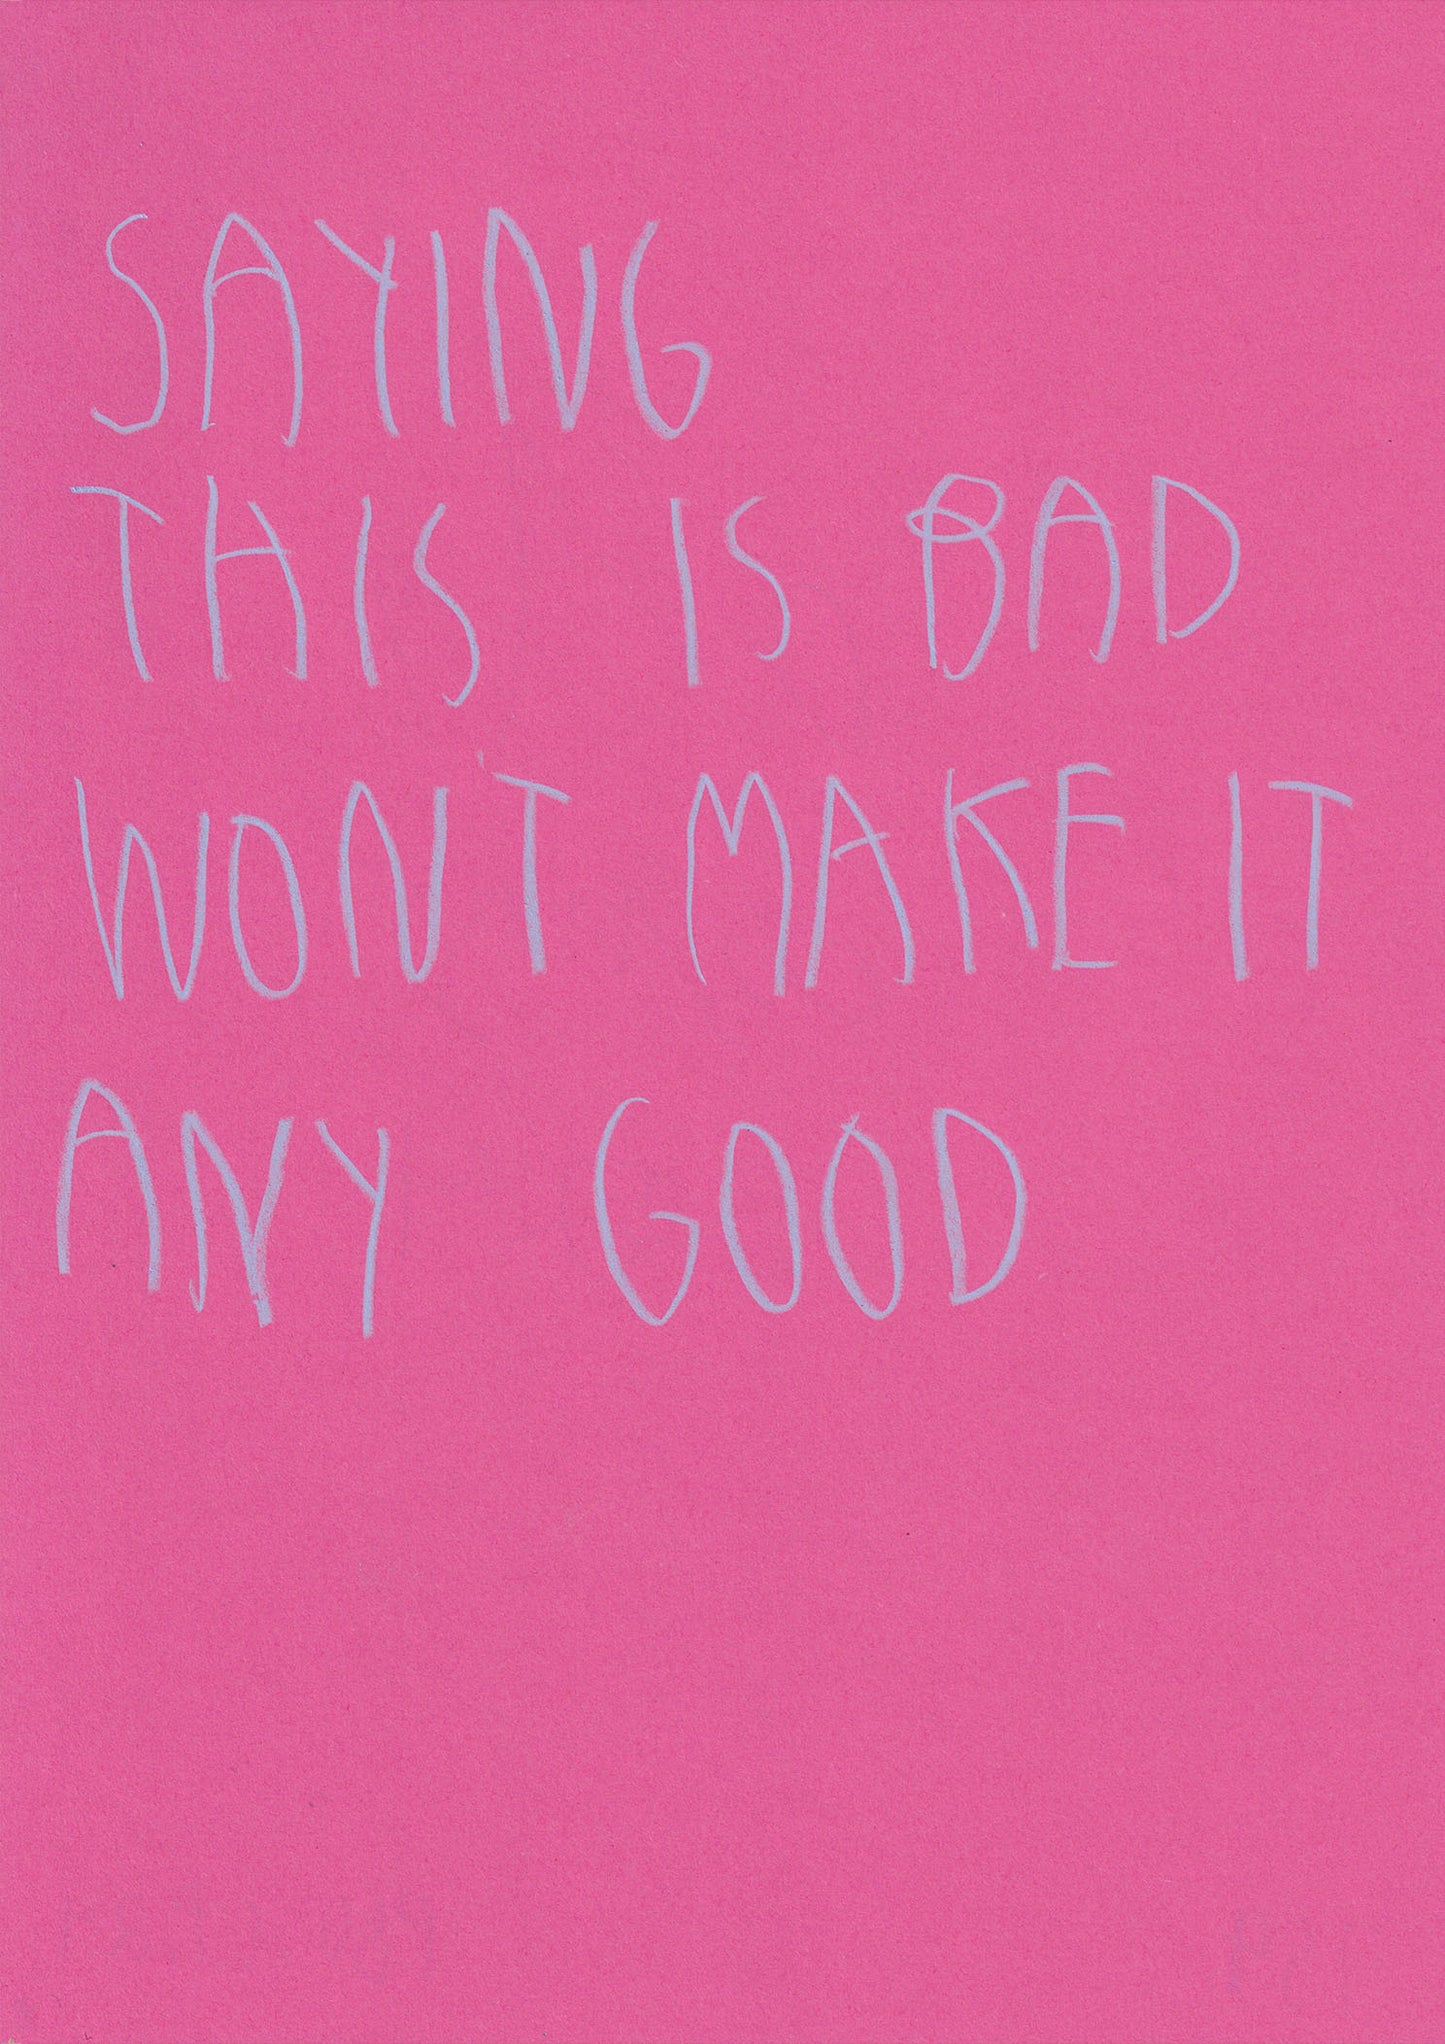 SAYING
THIS IS BAD
WON'T MAKE IT
ANY GOOD